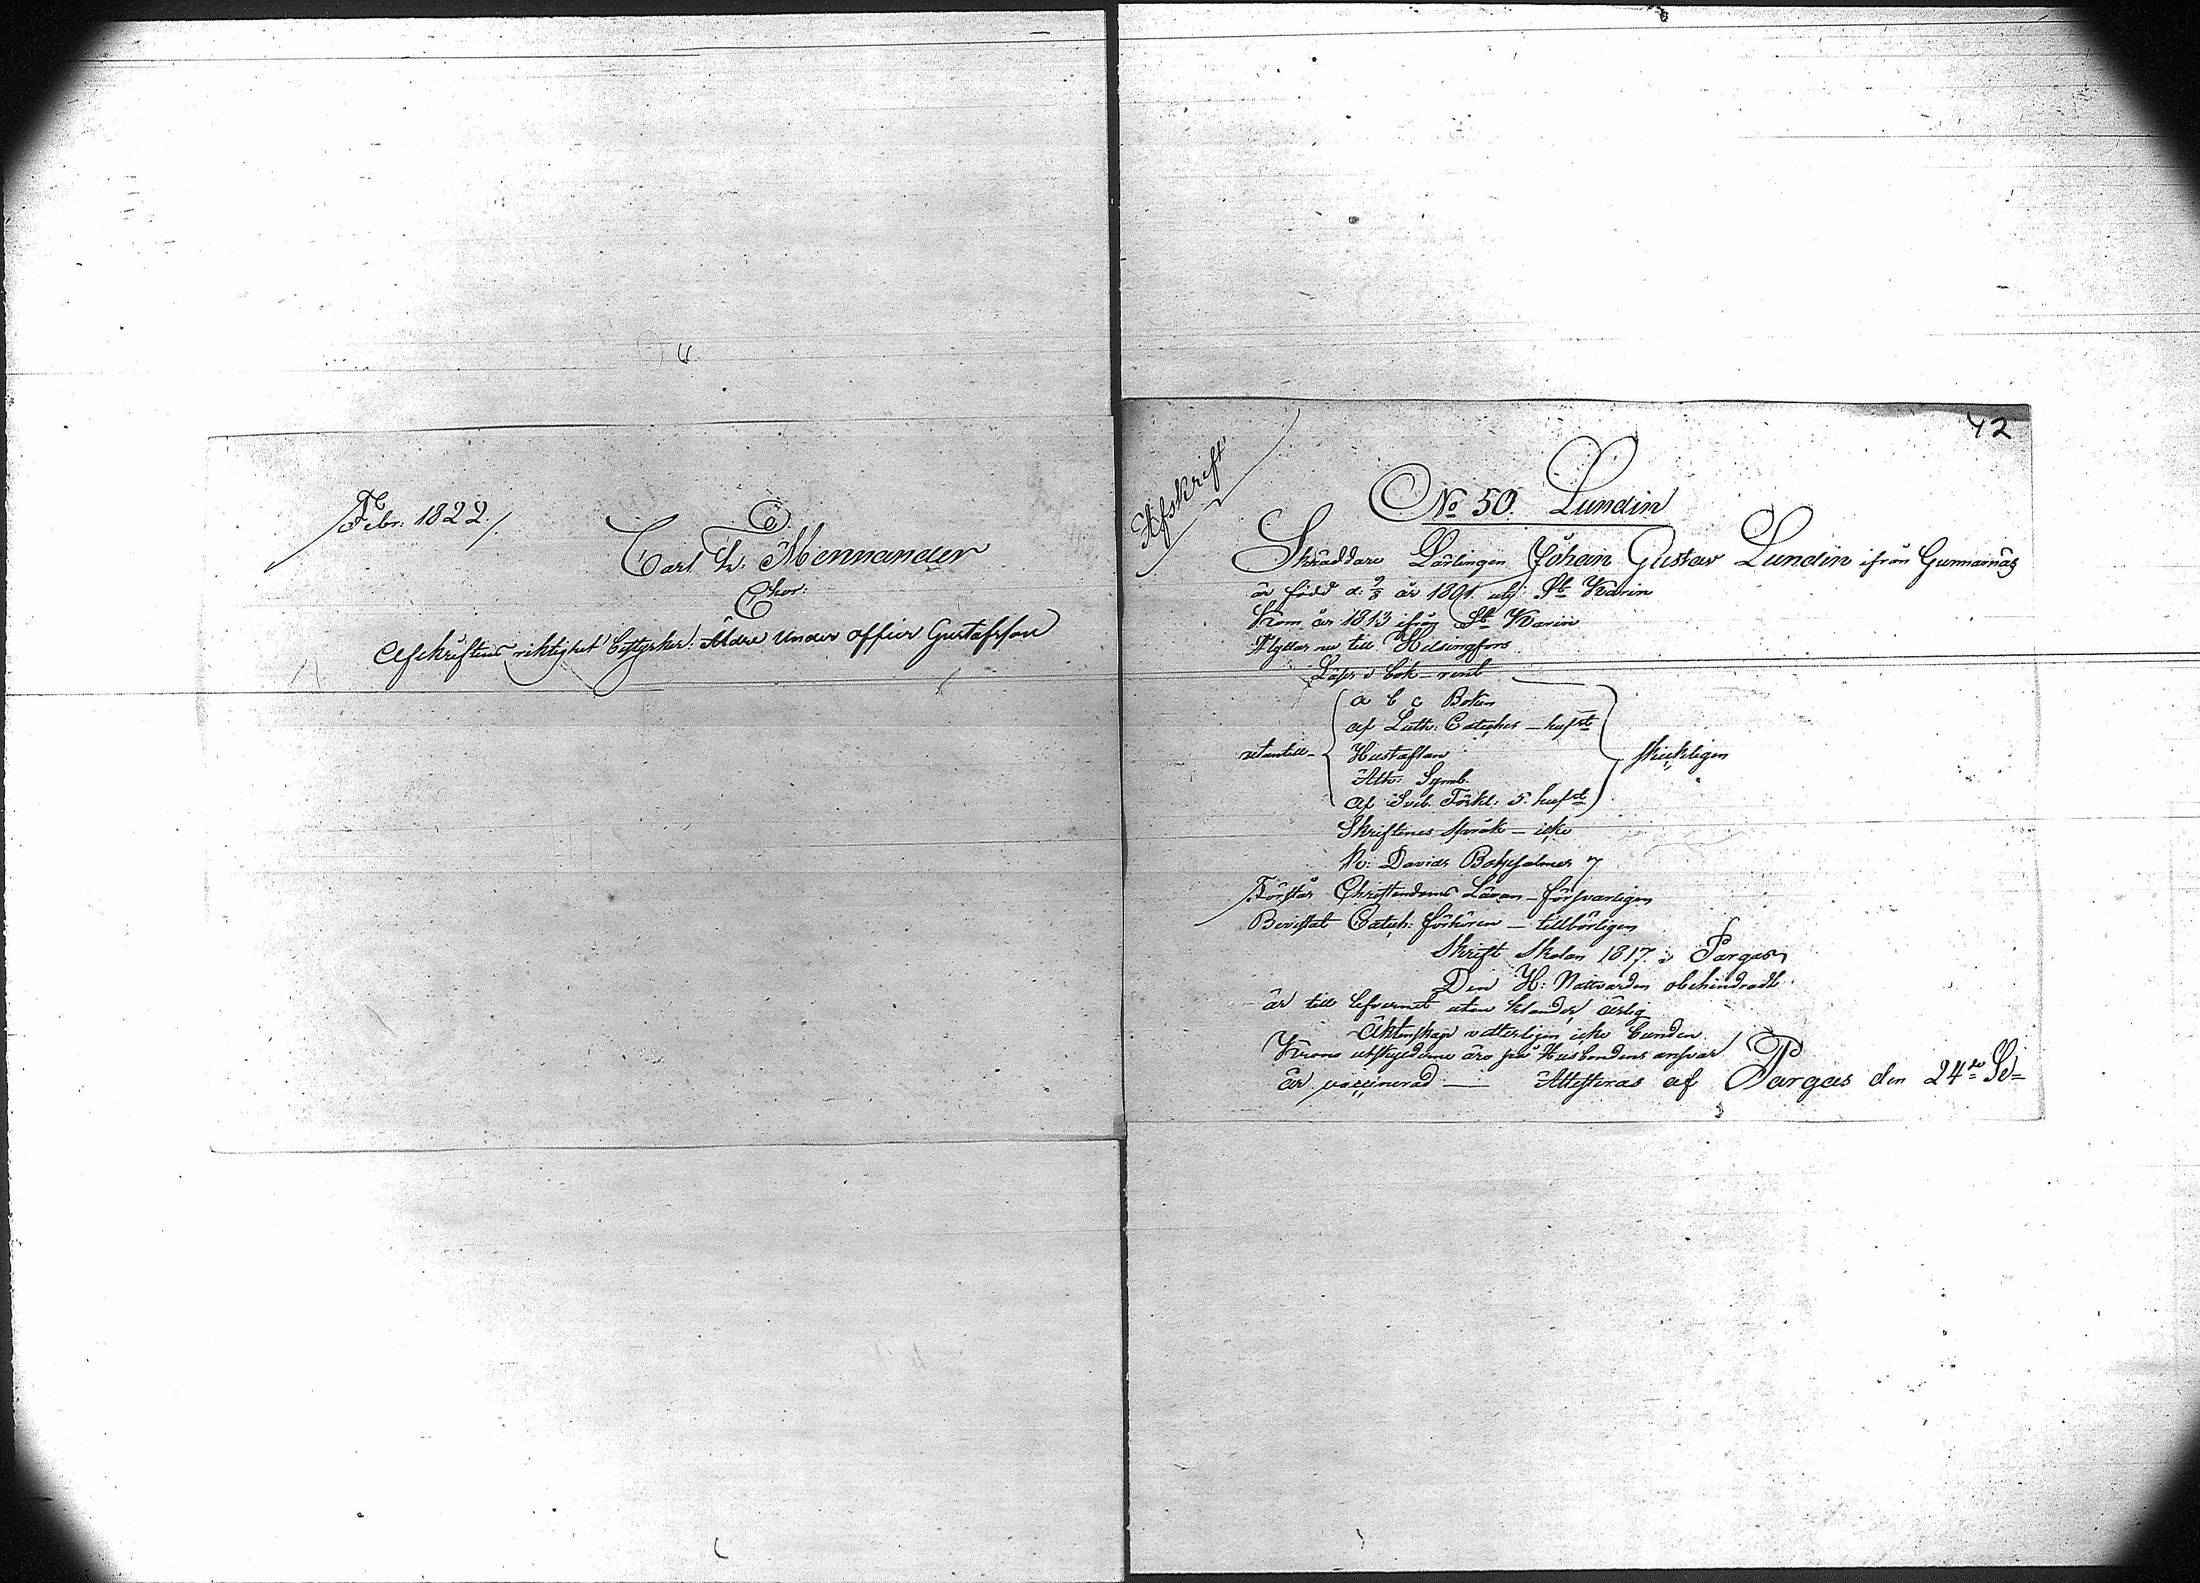 Febr: 1822.
Carl Fr: Mennander
Afskriftens riktighet bestyrker: Äldre Under officer Gustafsson
42
Afskrift
No 50. Lundin
Skräddare Lärlingen Johan Gustav Lundin ifrån Gunnarnäs
är född d: 9/8 år 1801. uti St Karin
Kom år 1813 ifrån St Karin
Flyttar nu till Helsingfors
Läser i bok - rent
a b c Boken
af Luth: Cateches - hufst
utantill - Hustaflan skickligen
Ath: Symb.
af Sveb. Förkl: 5. hufst
Skriftenes språk - icke
K: Davids Botpsalmer 7
Förstår Christendoms Läran - försvarligen
Bevistat Catech: förhören - tillbörligen
Skrift Skolan 1817. i Pargas
Den H: Nattvarden obehindradt
är till lefvernet utan klander, ärlig
Äktenskap vitterligen icke bunden
Krono utskylderne äro på Husbondens ansvar
är vaccinerad - Attesteras af Pargas den 24de